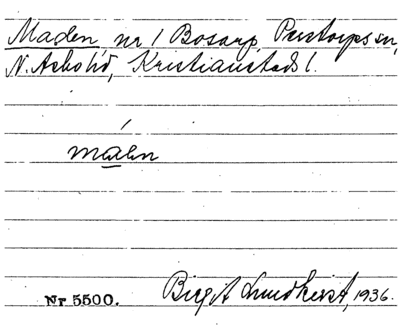 Maden nr 1 Bosarp, Perstorps sn,
N. Åsbo hd, Kristianstads l.
máden
Nr 5500. Birgit Lundkvist, 1936.